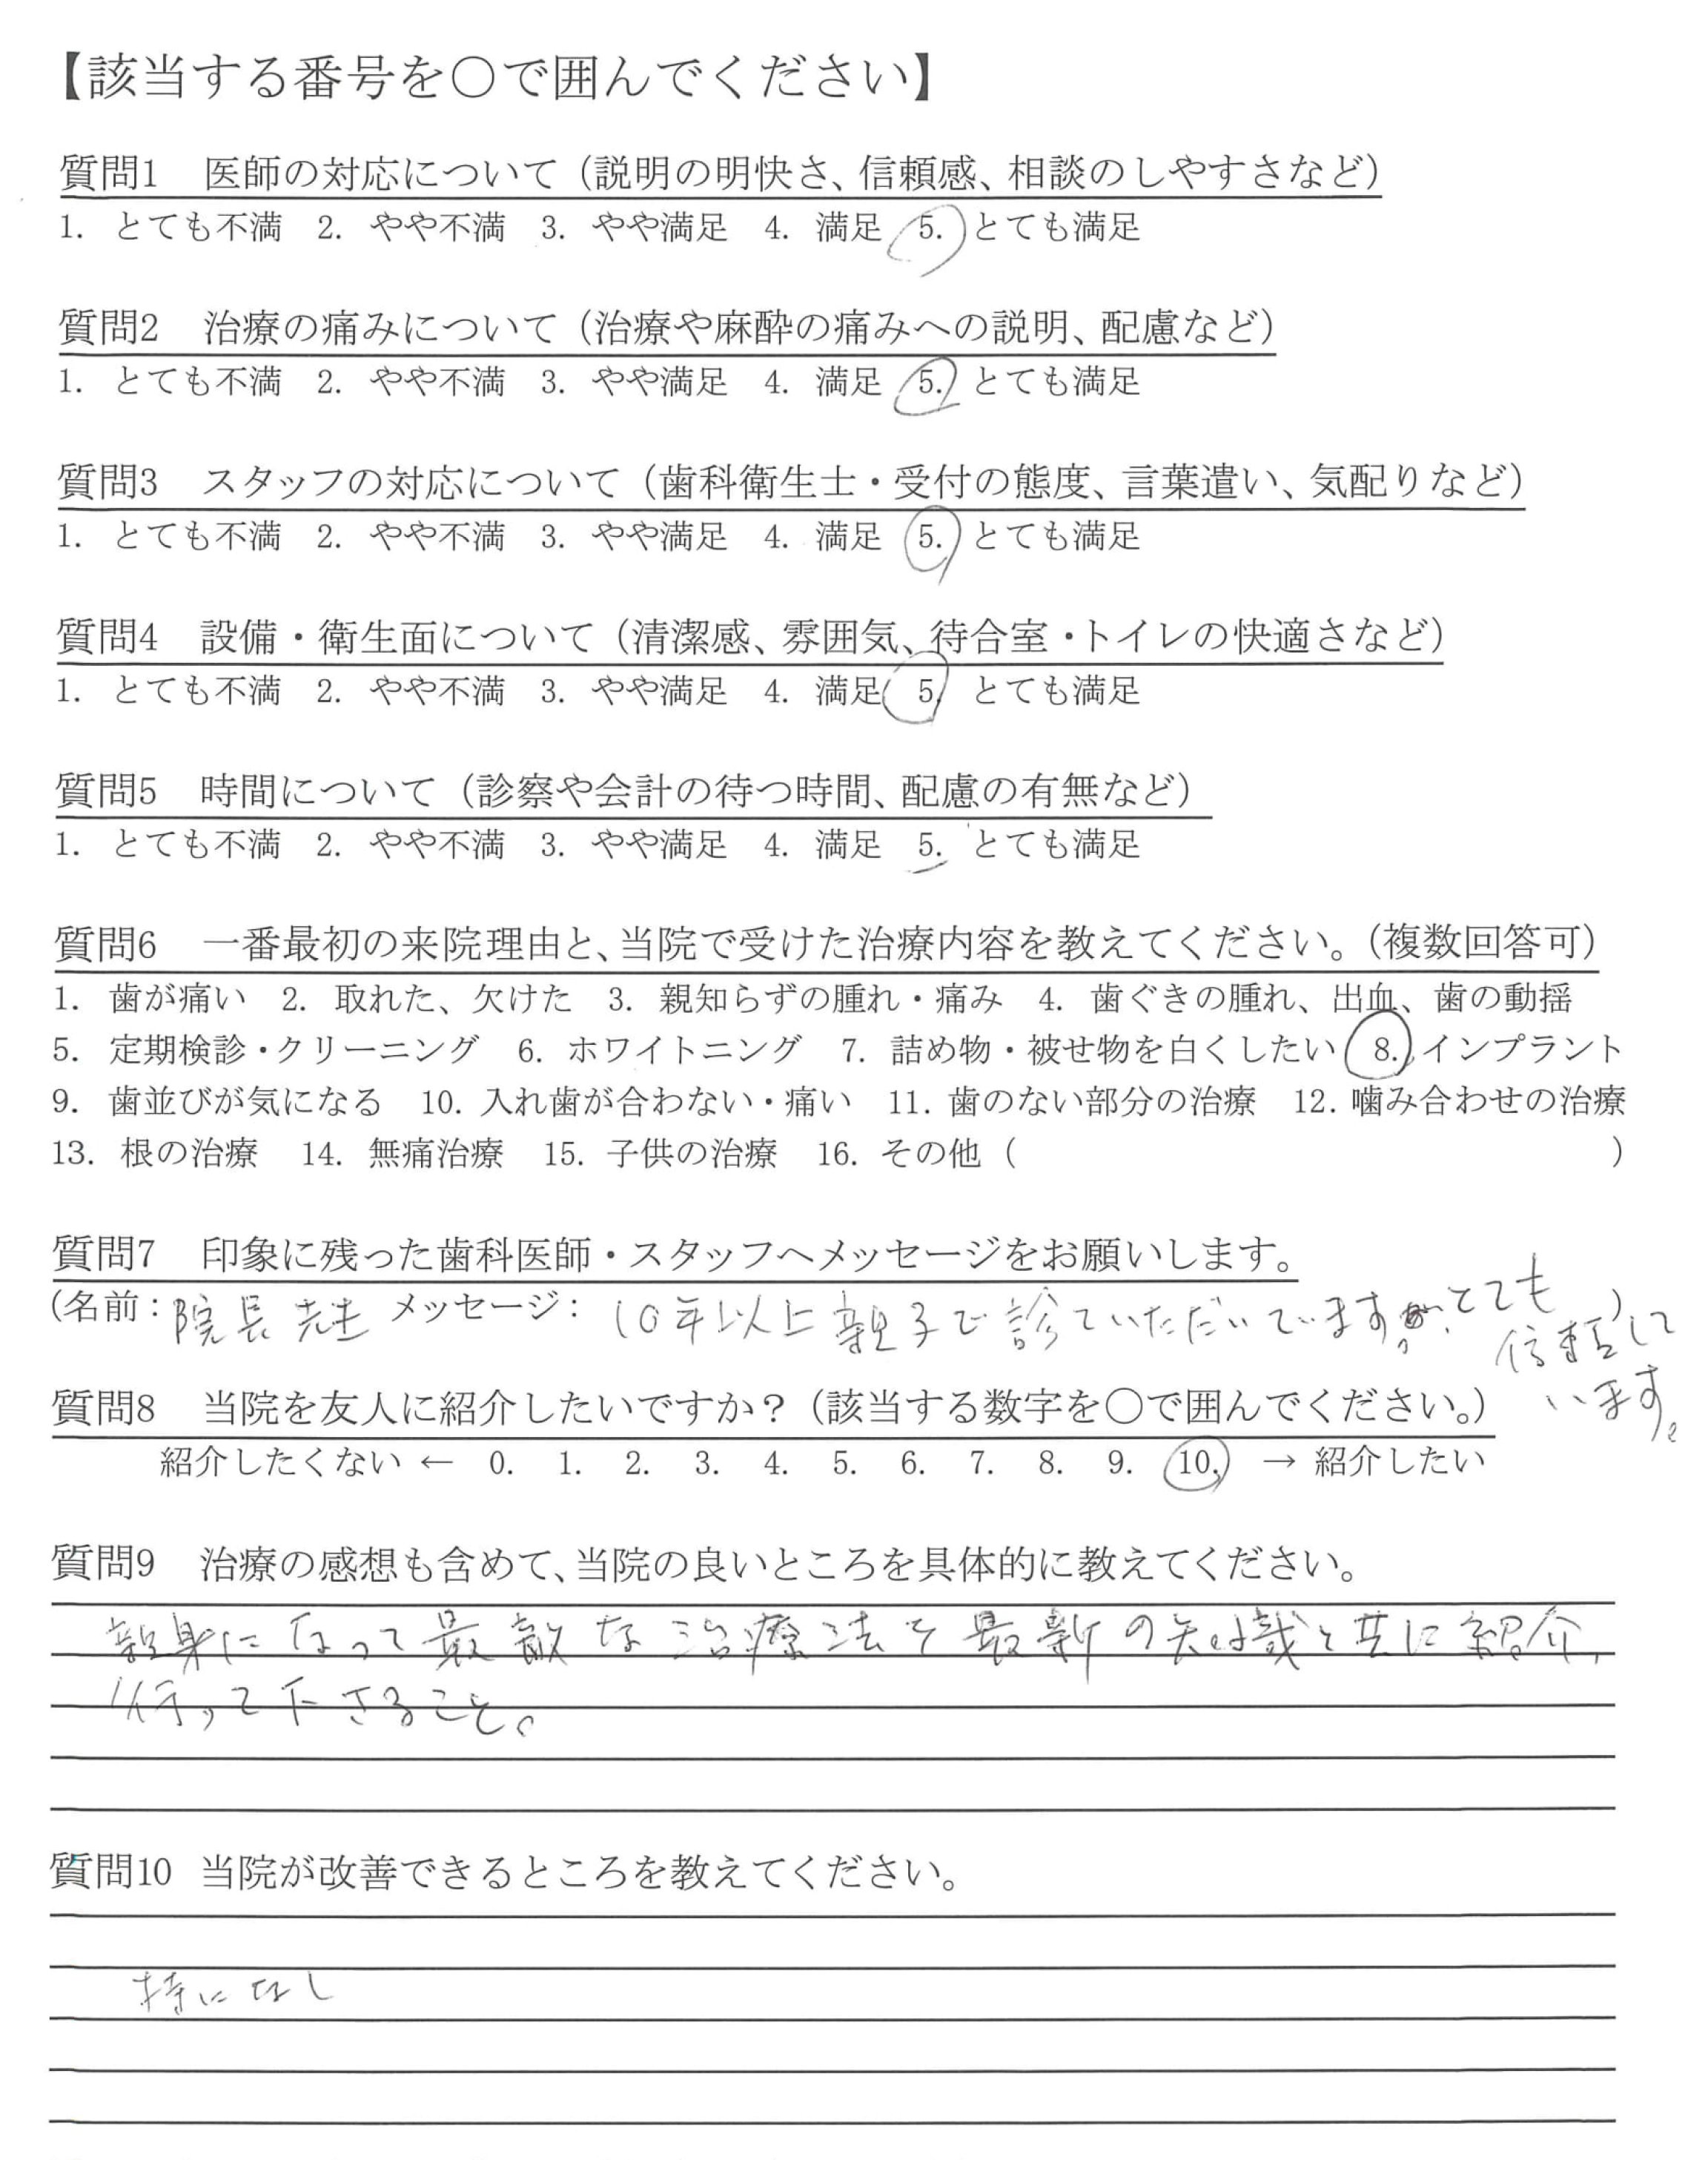 【該当する番号を〇で囲んでください】
質問1　医師の対応について（説明の明快さ、信頼感、相談のしやすさなど）
1. とても不満　2. やや不満　3. やや満足　4. 満足　5. とても満足
質問2　治療の痛みについて（治療や麻酔の痛みへの説明、配慮など）
1. とても不満　2. やや不満　3. やや満足　4. 満足　5. とても満足
質問3　スタッフの対応について（歯科衛生士・受付の態度、言葉遣い、気配りなど）
1. とても不満　2. やや不満　3. やや満足　4. 満足　5. とても満足
質問4　設備・衛生面について（清潔感、雰囲気、待合室・トイレの快適さなど）
1. とても不満　2. やや不満　3. やや満足　4. 満足　5. とても満足
質問5　時間について（診察や会計の待つ時間、配慮の有無など）
1. とても不満　2. やや不満　3. やや満足　4. 満足　5. とても満足
質問6　一番最初の来院理由と、当院で受けた治療内容を教えてください。（複数回答可）
1. 歯が痛い　2. 取れた、欠けた　3. 親知らずの腫れ・痛み　4. 歯ぐきの腫れ、出血、歯の動揺
5. 定期検診・クリーニング　6. ホワイトニング　7. 詰め物・被せ物を白くしたい　8. インプラント
9. 歯並びが気になる　10. 入れ歯が合わない・痛い　11. 歯のない部分の治療　12. 噛み合わせの治療
13. 根の治療　14. 無痛治療　15. 子供の治療　16. その他（　　　）
質問7　印象に残った歯科医師・スタッフへメッセージをお願いします。
（名前：院長先生 メッセージ：10年以上親子で診ていただいています。とても）
信頼して
います。
質問8　当院を友人に紹介したいですか？（該当する数字を〇で囲んでください。）
紹介したくない ← 0. 1. 2. 3. 4. 5. 6. 7. 8. 9. 10. → 紹介したい
質問9　治療の感想も含めて、当院の良いところを具体的に教えてください。
親身になって最敵な治療法を最新の知識と共に紹介、
行って下さること。
質問10 当院が改善できるところを教えてください。
特になし